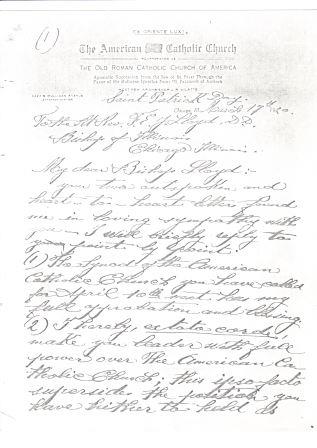 (1)
EX ORIENTE LUX
The American Catholic Church
THE OLD ROMAN CATHOLIC CHURCH OF AMERICA
Apostolic Succession from the See of St. Peter Through the
Saint Patrick Day.
March 17th
To the Rt Rev. F. E. J. Lloyd, D. D.
Bishop of Illinois
Chicago Illinois.
My dear Bishop Lloyd:-
your two outspoken and
heart-to-heart letters found
me in loving sympathy with
you I will briefly reply to
point by point.
(1) The Synod of the American
Catholic Church you have called
for April 10th next has my
full approbation and blessing
(2) I hereby, ex toto corde,
make you leader with full
power over The American Ca-
tholic Church; this ipso facto
supersedes the position you
have hitherto held